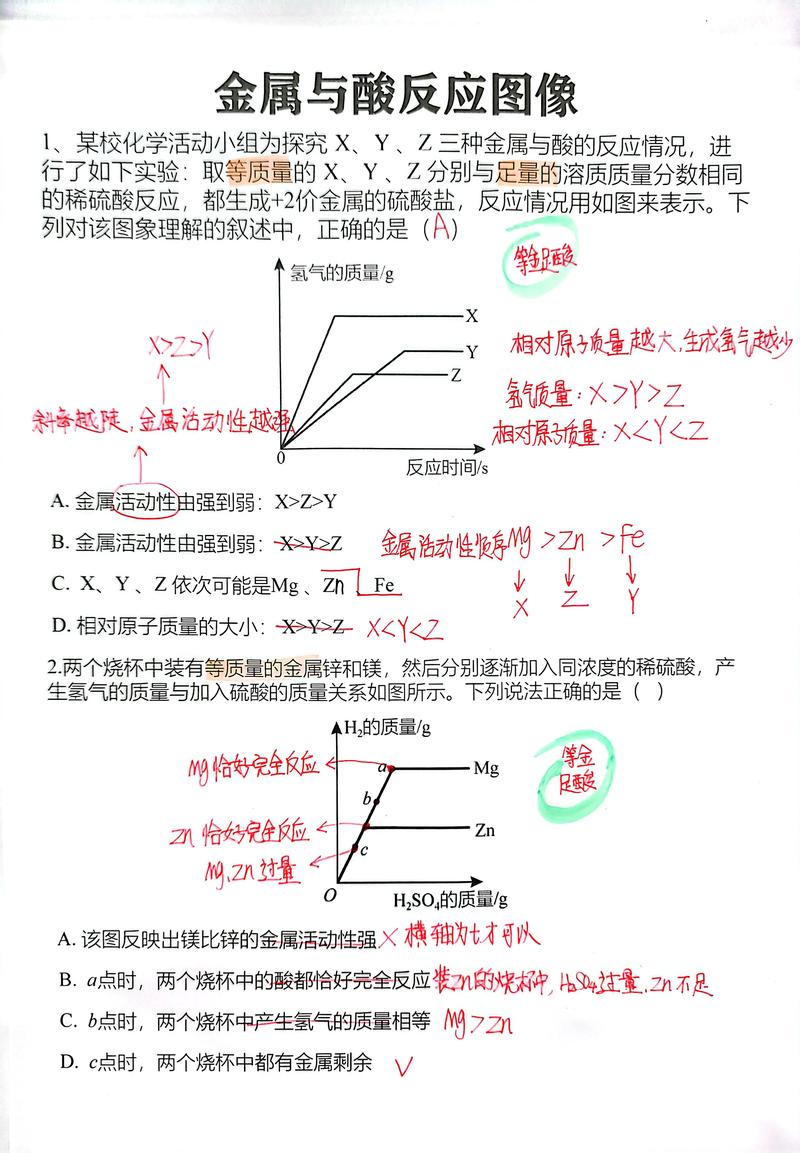 金属与酸反应图像
1、某校化学活动小组为探究 X、Y 、Z 三种金属与酸的反应情况，进
行了如下实验：取等质量的 X、Y 、Z 分别与足量的溶质质量分数相同
的稀硫酸反应，都生成+2价金属的硫酸盐，反应情况用如图来表示。下
列对该图象理解的叙述中，正确的是（A）
等金足酸
氢气的质量/g
X
Y
Z
0
反应时间/s
X>Z>Y
斜率越陡，金属活动性越强
相对原子质量越大，生成氢气越少
氢气质量：X>Y>Z
相对原子质量：X<Y<Z
A. 金属活动性由强到弱：X>Z>Y
B. 金属活动性由强到弱：X>Y>Z
金属活动性顺序Mg>Zn>Fe
C. X、Y 、Z 依次可能是Mg 、Zn 、Fe
X Z Y
D. 相对原子质量的大小：X>Y>Z X<Y<Z
2.两个烧杯中装有等质量的金属锌和镁，然后分别逐渐加入同浓度的稀硫酸，产
生氢气的质量与加入硫酸的质量关系如图所示。下列说法正确的是（ ）
H₂的质量/g
等金
足酸
Mg恰好完全反应
a
Mg
b
Zn恰好完全反应
Zn
Mg、Zn过量
c
O
H₂SO₄的质量/g
A. 该图反映出镁比锌的金属活动性强×横轴为t才可以
B. a点时，两个烧杯中的酸都恰好完全反应 装Zn的烧杯中，H₂SO₄过量，Zn不足
C. b点时，两个烧杯中产生氢气的质量相等 Mg>Zn
D. c点时，两个烧杯中都有金属剩余 √